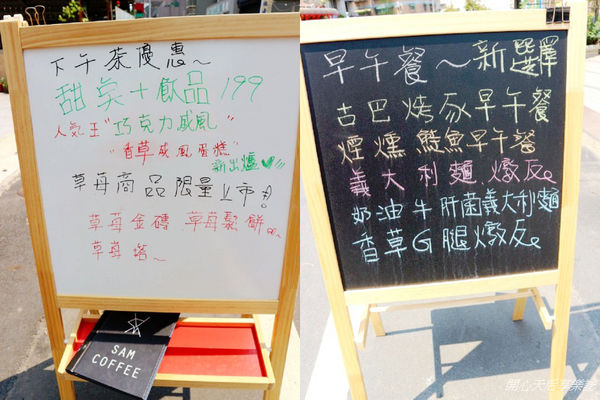 下午茶優惠~
甜點+飲品 199
人氣王"巧克力戚風"
"香草戚風蛋糕"
新出爐
草莓商品限量上市。
草莓金磚 草莓鬆餅
草莓塔~
SAM
COFFEE
早午餐~新選擇
古巴烤豚早午餐
煙燻鮭魚早午餐
義大利麵燉反。
奶油牛肝菌義大利麵
香草G腿燉反。
開心天后享樂誌